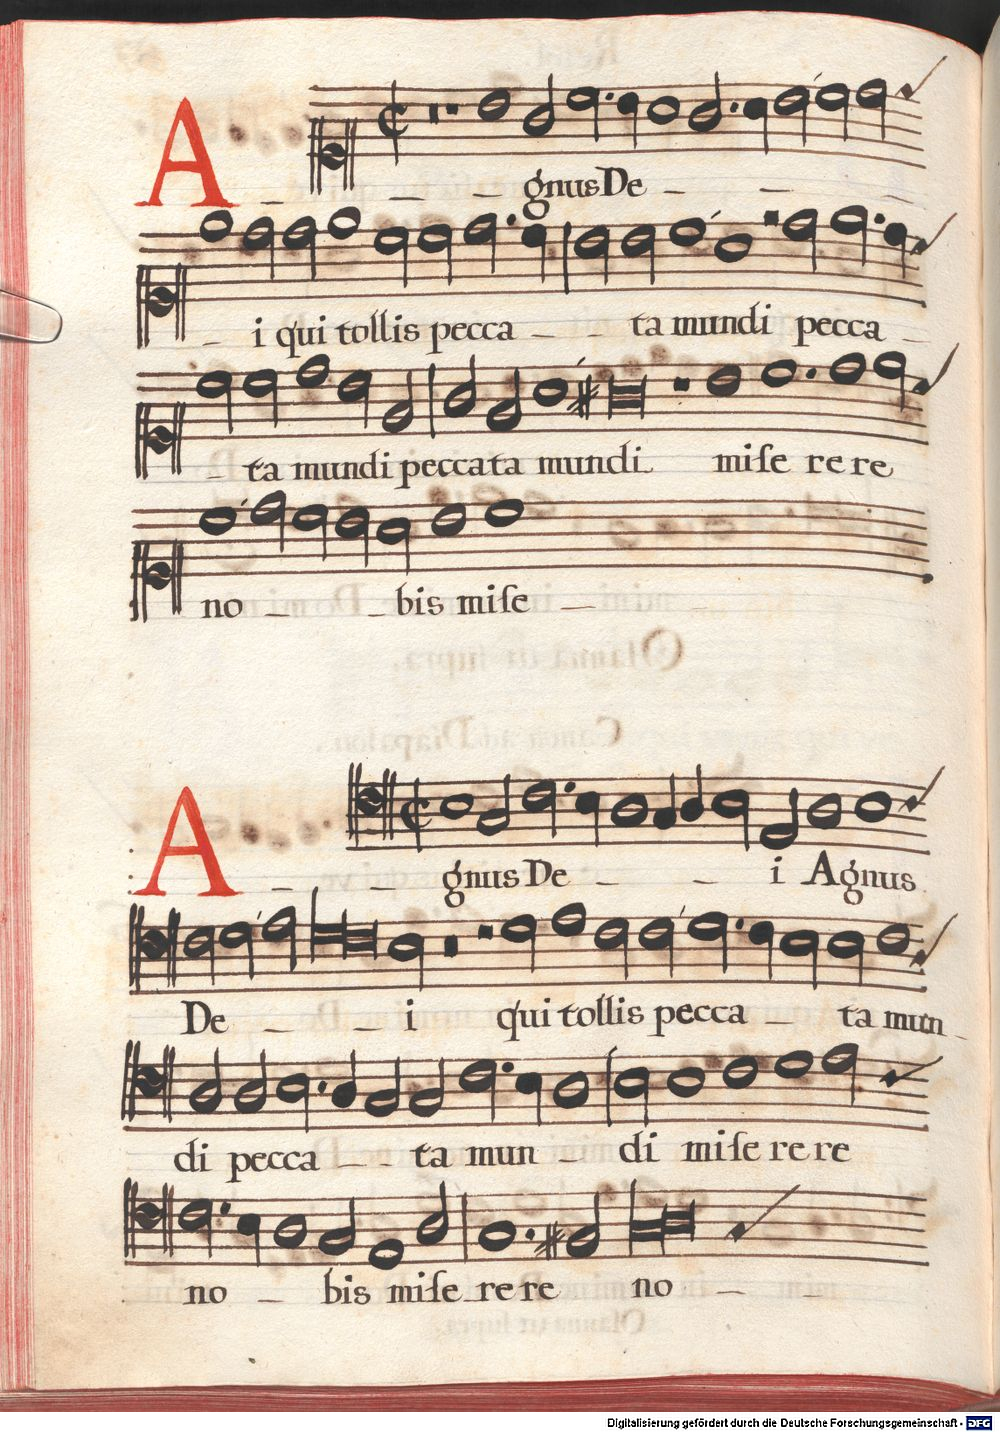 A _ _ _ gnus De _ _
_ i qui tollis pecca _ ta mundi pecca _
_ ta mundi peccata mundi miſe re re
no _ _ bis miſe _ _
A _ _ gnus De _ _ i Agnus
De _ _ i qui tollis pecca _ ta mun
di pecca _ _ ta mun _ di miſe re re
no _ bis miſe re re no _ _
Digitalisierung gefördert durch die Deutsche Forschungsgemeinschaft - DFG